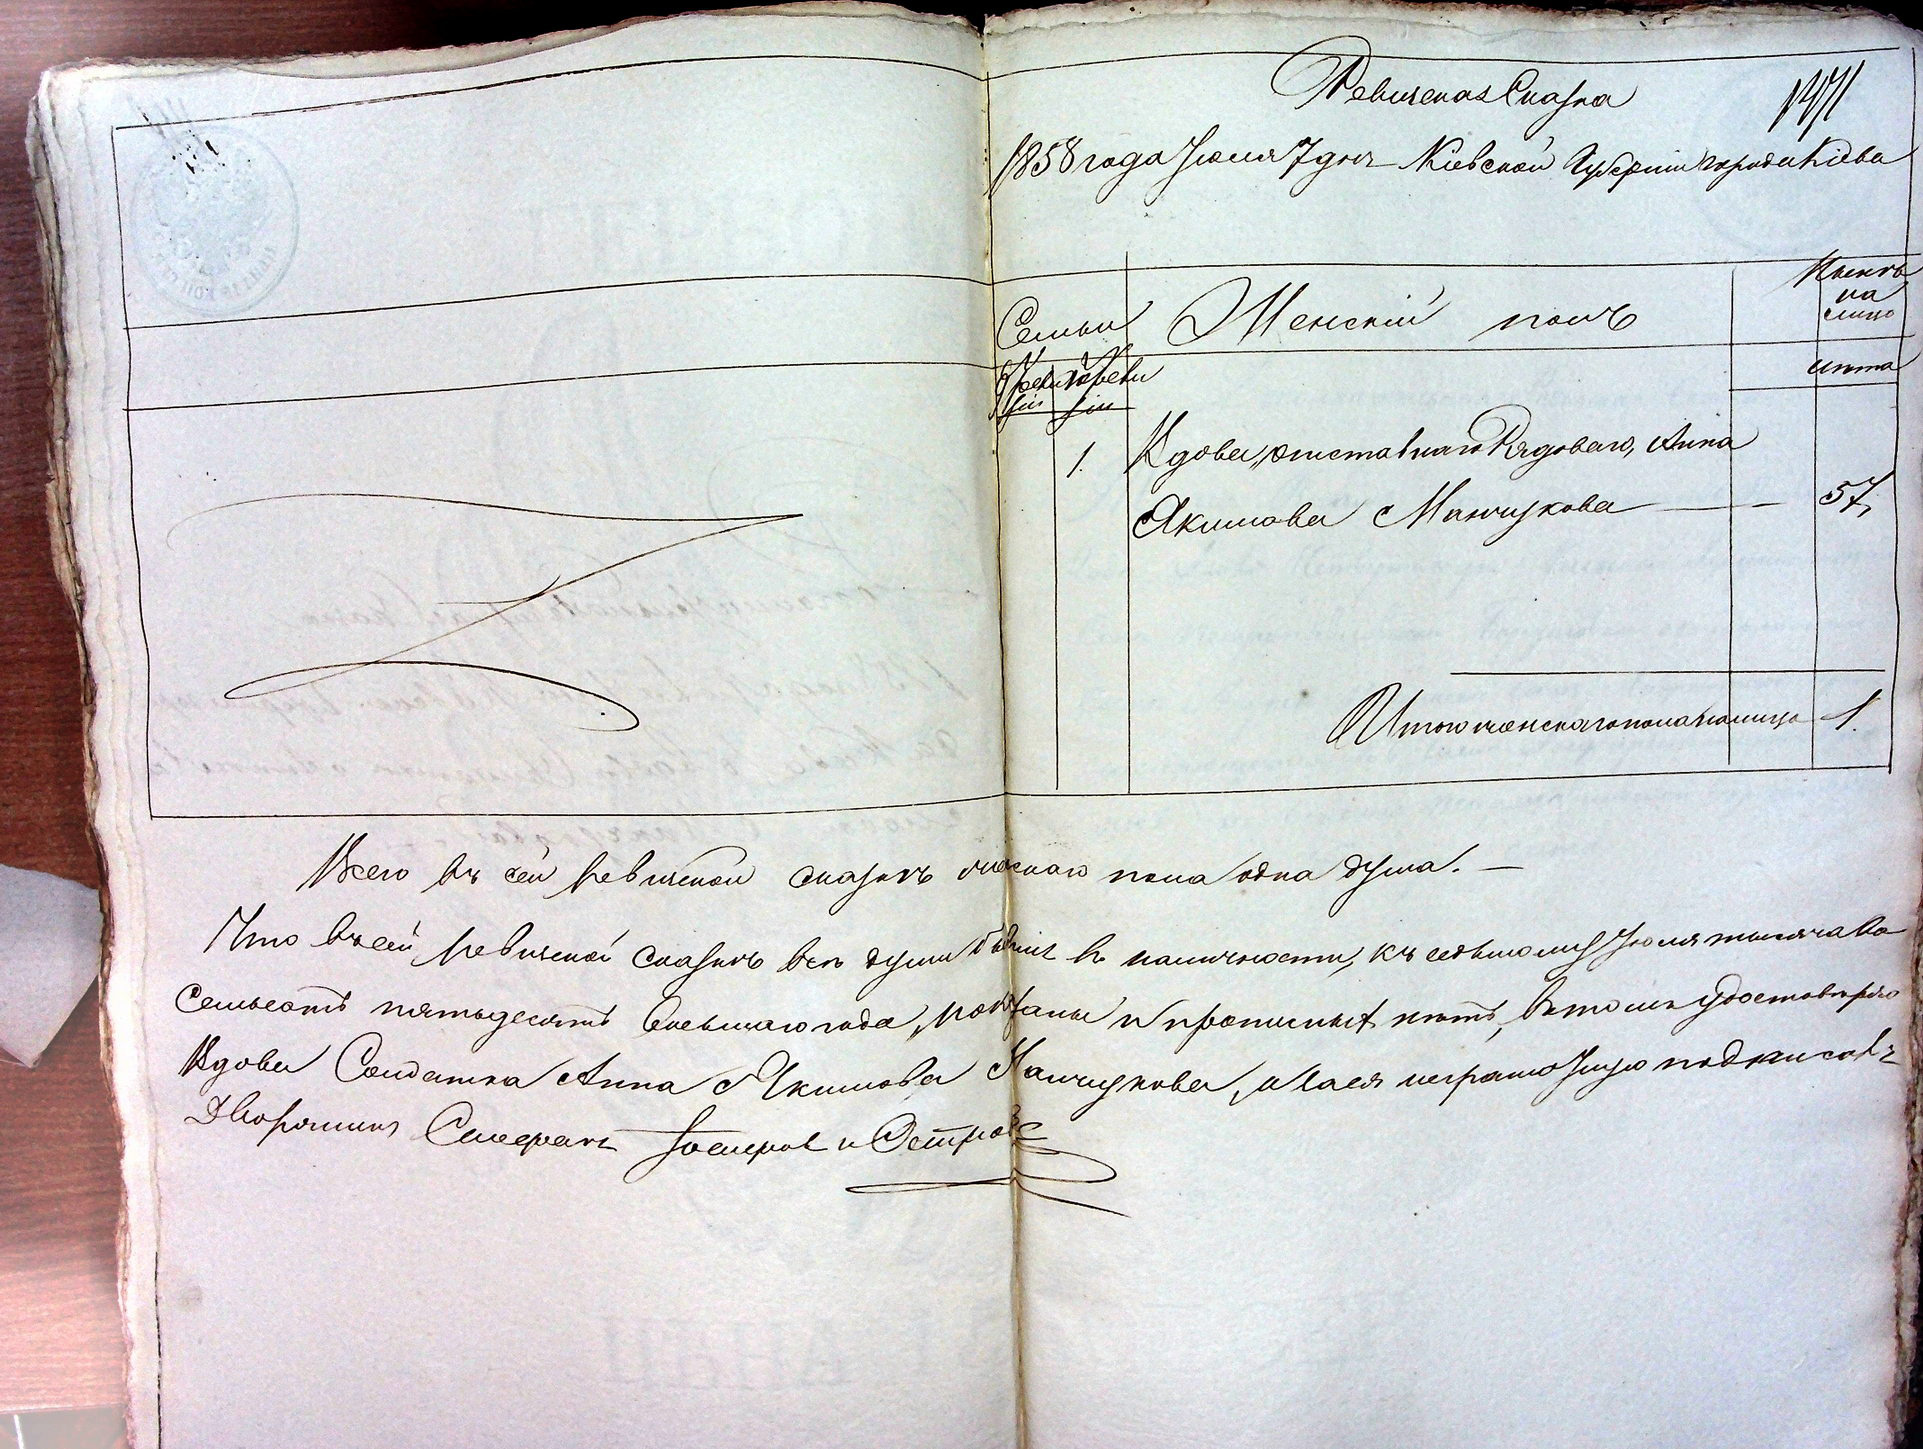 Ревизская Сказка
1858 года Июля 7 дня Кіевской Губерніи города Кіева
Семьи
Женскій полъ
Нынѣ
на
лицо
лѣта
1. Вдова отставнаго Рядоваго, Анна
Якимова Манчукова — 57,
Итого женскаго пола на лицо 1.
Всего въ сей ревизской сказкѣ женскаго пола одна душа. —
Что въ сей ревизской сказкѣ всѣ души бывшіе въ наличности, къ седьмому Июля тысяча во
семьсотъ пятьдесятъ восьмаго года, показаны и прописныхъ нѣтъ, въ томъ удостовѣряю
Вдова Солдатка Анна Якимова Манчукова, а за ея неграмотную подписалъ
Дворянинъ